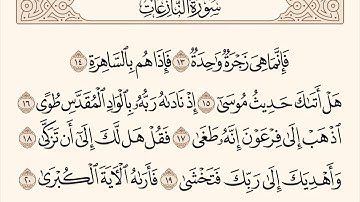 سُورَةُ النَّازِعَاتِ
فَإِنَّمَا هِيَ زَجْرَةٌ وَٰحِدَةٌ ١٣ فَإِذَا هُم بِٱلسَّاهِرَةِ ١٤
هَلْ أَتَىٰكَ حَدِيثُ مُوسَىٰٓ ١٥ إِذْ نَادَىٰهُ رَبُّهُۥ بِٱلْوَادِ ٱلْمُقَدَّسِ طُوًى ١٦
ٱذْهَبْ إِلَىٰ فِرْعَوْنَ إِنَّهُۥ طَغَىٰ ١٧ فَقُلْ هَل لَّكَ إِلَىٰٓ أَن تَزَكَّىٰ ١٨
وَأَهْدِيَكَ إِلَىٰ رَبِّكَ فَتَخْشَىٰ ١٩ فَأَرَىٰهُ ٱلْءَايَةَ ٱلْكُبْرَىٰ ٢٠